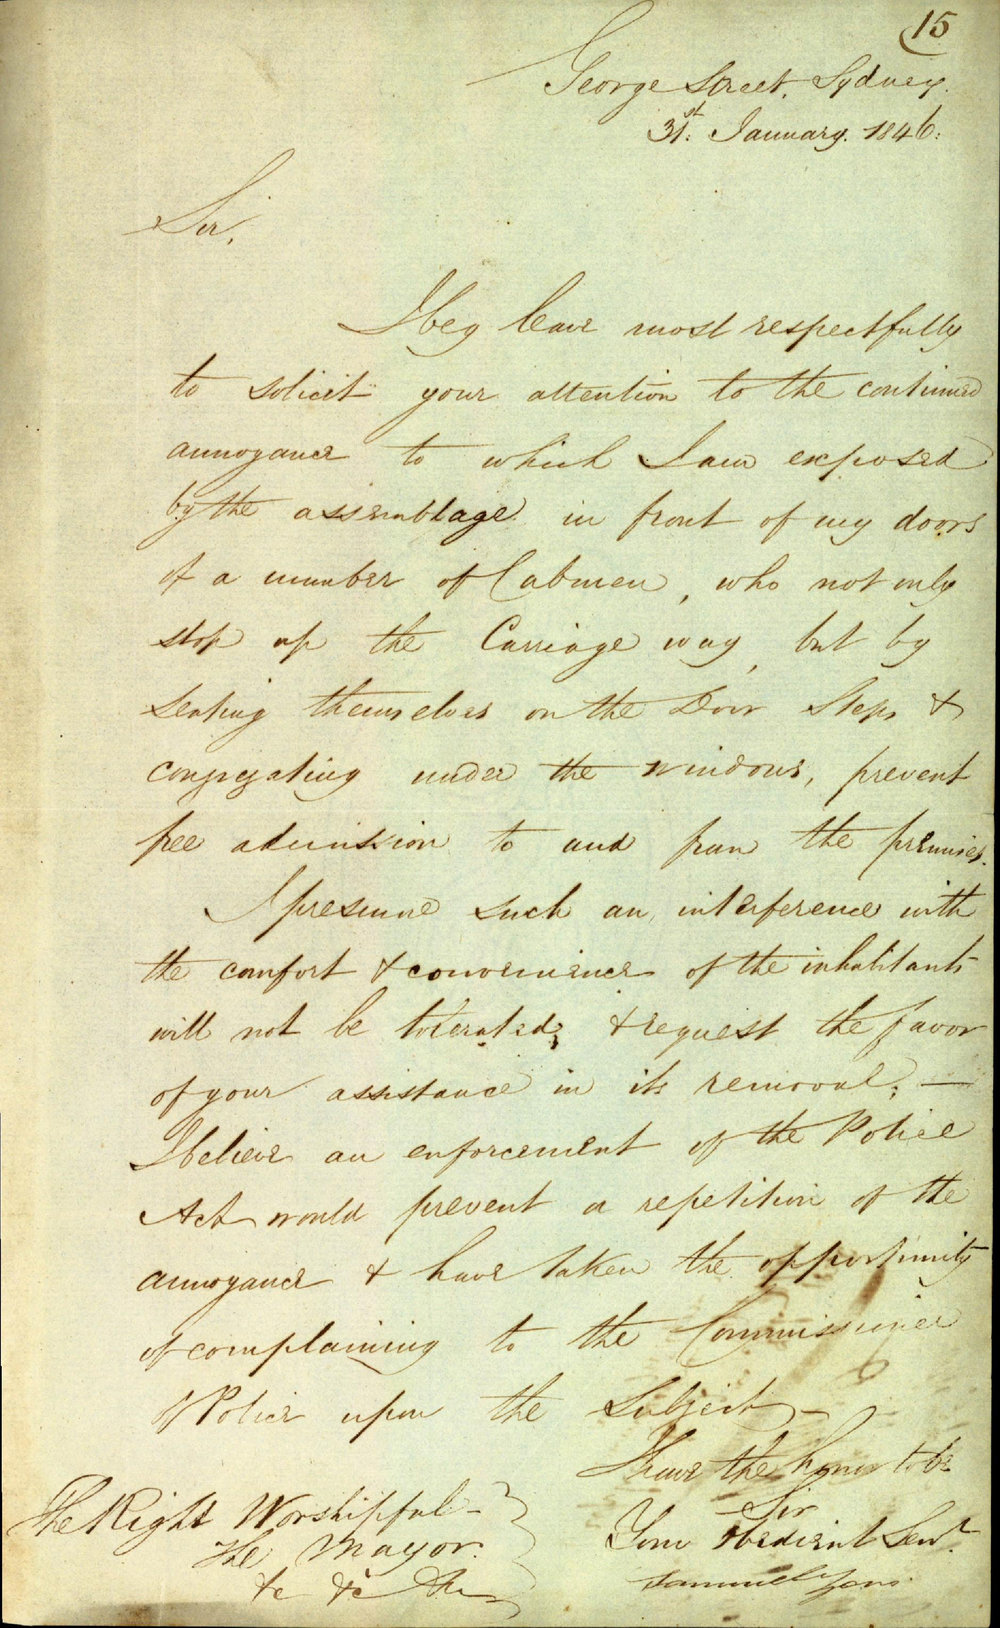 15
George Street, Sydney.
31st. January. 1846.
Sir,
I beg leave most respectfully
to solicit your attention to the continued
annoyance to which I am exposed
by the assemblage in front of my doors
of a number of Cabmen, who not only
stop up the Carriage way, but by
seating themselves on the Door Steps &
congregating under the windows, prevent
free admission to and from the premises.
I presume such an interference with
the comfort & convenience of the inhabitants
will not be tolerated, & request the favor
of your assistance in its removal; —
I believe an enforcement of the Police
Act would prevent a repetition of the
annoyance & have taken the opportunity
of complaining to the Commissioner
of Police upon the Subject —
I have the honor to be
Sir
Your Obedient Servt.
Samuel Lyons
The Right Worshipful
The Mayor.
&c &c &c